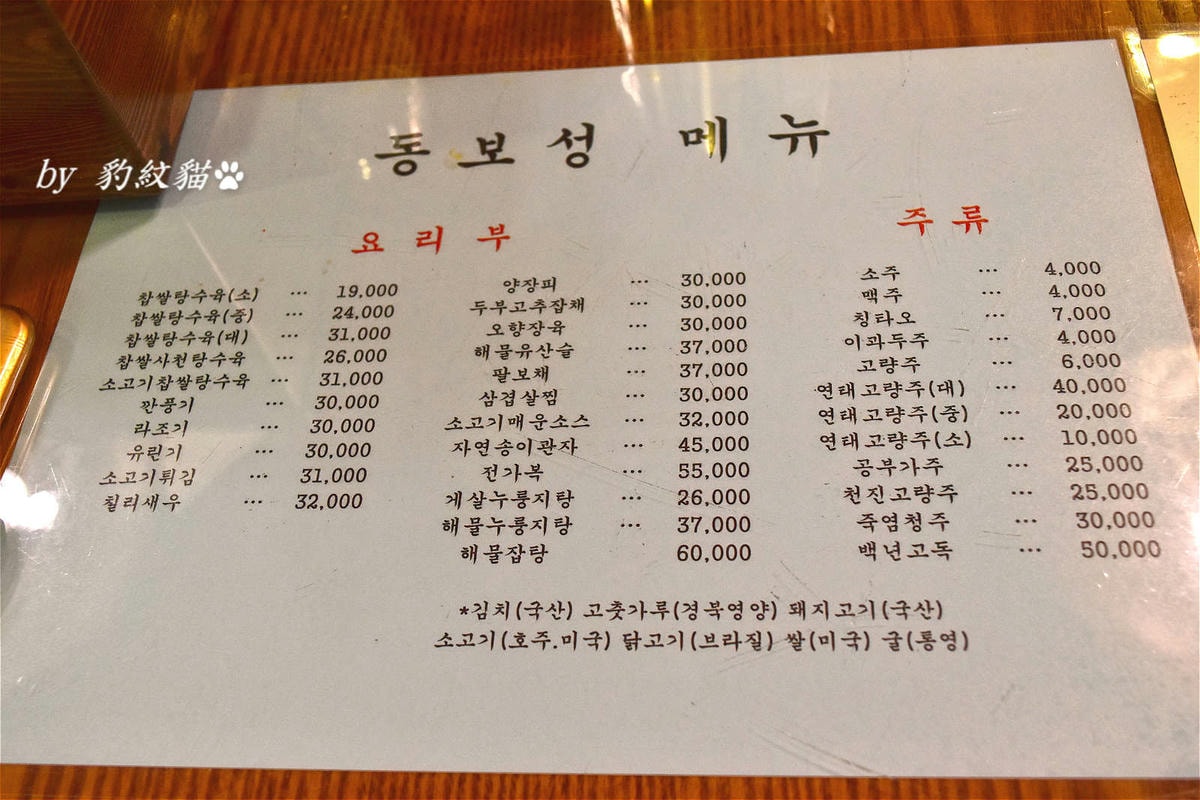 by 豹紋貓
동보성 메뉴
요리부
찹쌀탕수육(소) ... 19,000
찹쌀탕수육(중) ... 24,000
찹쌀탕수육(대) ... 31,000
찹쌀사천탕수육 ... 26,000
소고기찹쌀탕수육 ... 31,000
깐풍기 ... 30,000
라조기 ... 30,000
유린기 ... 30,000
소고기튀김 ... 31,000
칠리새우 ... 32,000
양장피 ... 30,000
두부고추잡채 ... 30,000
오향장육 ... 30,000
해물유산슬 ... 37,000
팔보채 ... 37,000
삼겹살찜 ... 30,000
소고기매운소스 ... 32,000
자연송이관자 ... 45,000
전가복 ... 55,000
게살누룽지탕 ... 26,000
해물누룽지탕 ... 37,000
해물잡탕 60,000
주류
소주 ... 4,000
맥주 ... 4,000
칭타오 ... 7,000
이과두주 ... 4,000
고량주 ... 6,000
연태고량주(대) ... 40,000
연태고량주(중) ... 20,000
연태고량주(소) ... 10,000
공부가주 ... 25,000
천진고량주 ... 25,000
죽엽청주 ... 30,000
백년고독 ... 50,000
*김치(국산) 고춧가루(경북영양) 돼지고기(국산)
소고기(호주.미국) 닭고기(브라질) 쌀(미국) 굴(통영)